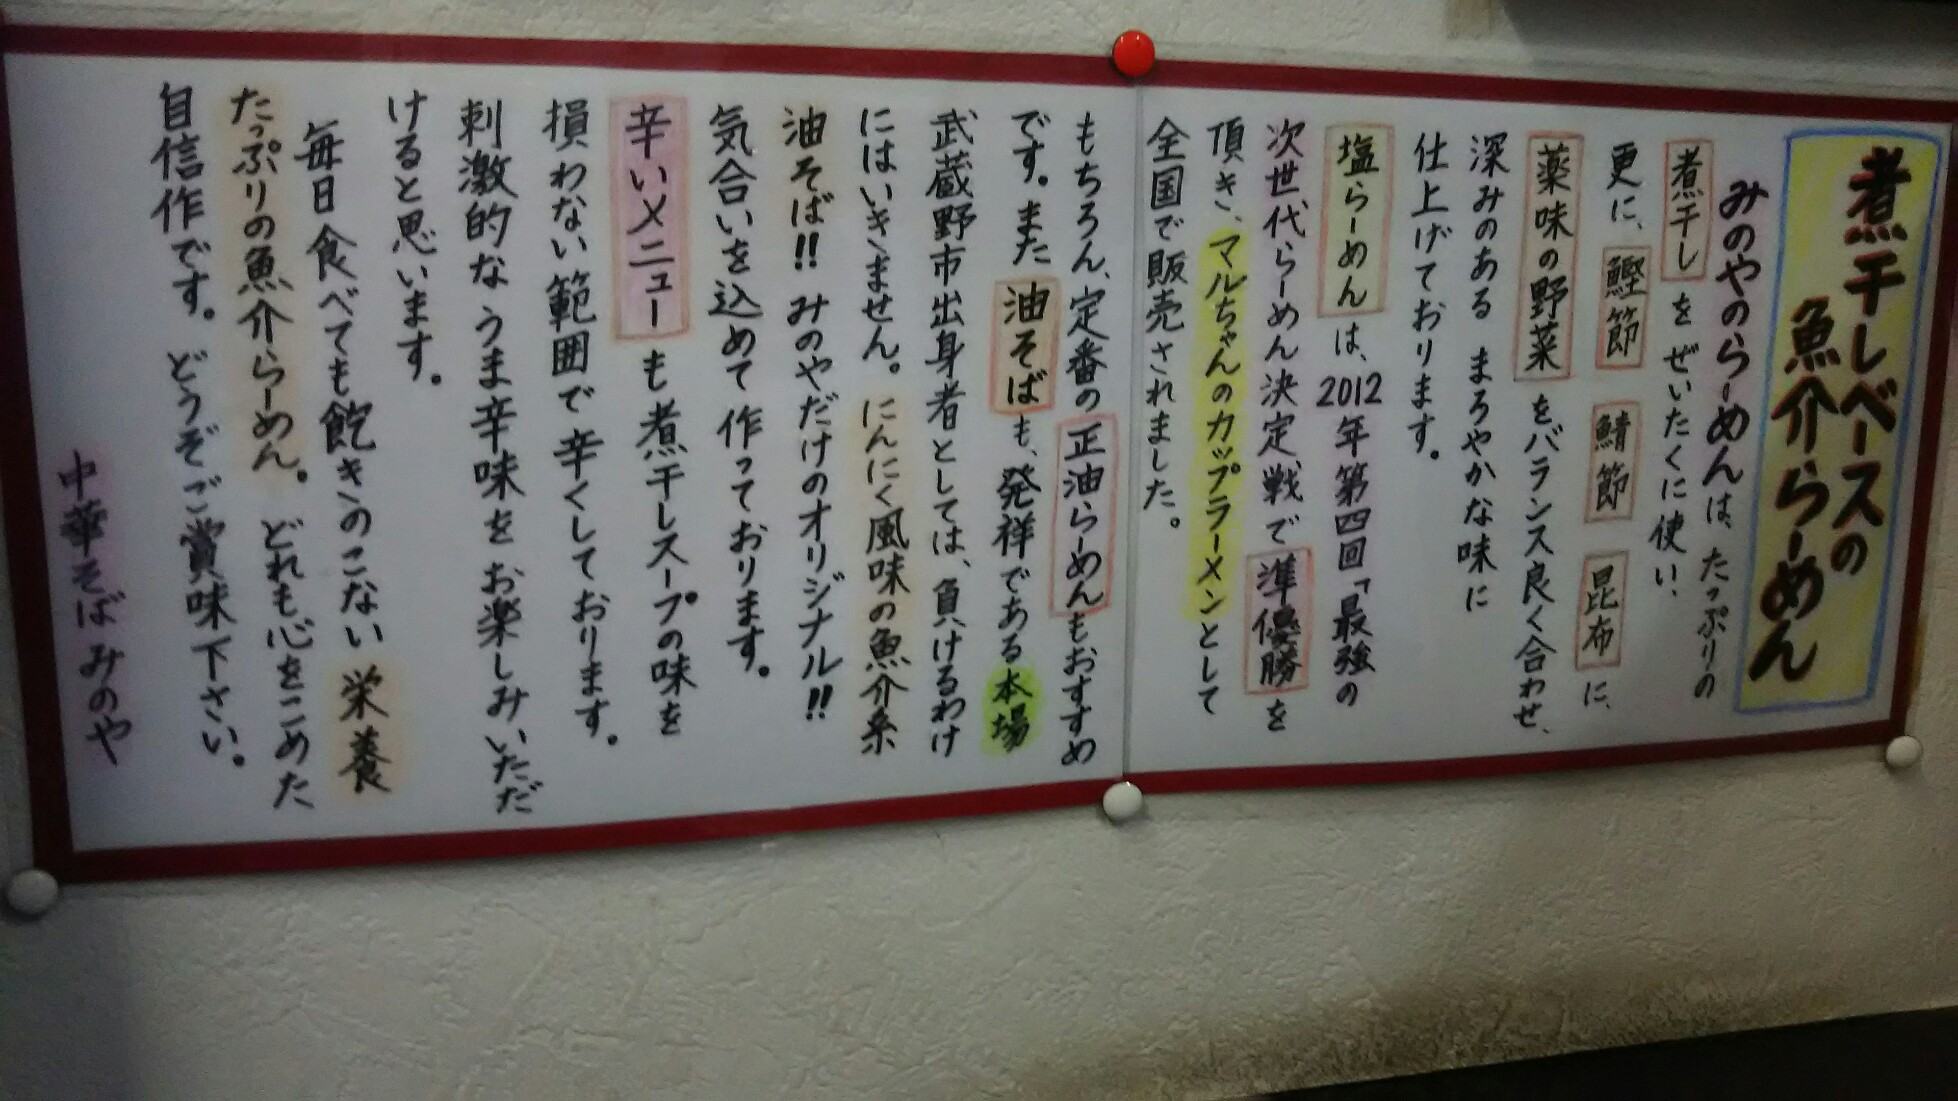 煮干しベースの
魚介らーめん
みのやのらーめんは、たっぷりの
煮干しをぜいたくに使い、
更に、鰹節 鯖節 昆布に、
薬味の野菜をバランス良く合わせ、
深みのある まろやかな味に
仕上げております。
塩らーめんは、2012年第四回「最強の
次世代らーめん決定戦で準優勝を
頂き、マルちゃんのカップラーメンとして
全国で販売されました。
もちろん、定番の正油らーめんもおすすめ
です。また油そばも、発祥である本場
武蔵野市出身者としては、負けるわけ
にはいきません。にんにく風味の魚介系
油そば!! みのやだけのオリジナル!!
気合いを込めて作っております。
辛いメニューも煮干しスープの味を
損わない範囲で辛くしております。
刺激的なうま辛味をお楽しみいただ
けると思います。
毎日食べても飽きのこない 栄養
たっぷりの魚介らーめん。どれも心をこめた
自信作です。どうぞご賞味下さい。
中華そば みのや